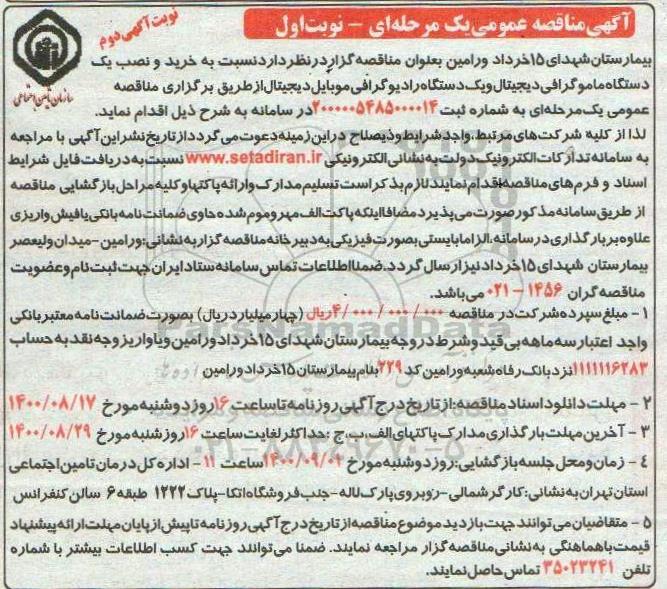 آگهی مناقصه عمومی یک مرحله‌ای - نوبت اول
نوبت آگهی دوم
سازمان تامین اجتماعی
بیمارستان شهدای ۱۵خرداد ورامین بعنوان مناقصه گزار در نظر دارد نسبت به خرید و نصب یک
دستگاه ماموگرافی دیجیتال و یک دستگاه رادیوگرافی موبایل دیجیتال از طریق برگزاری مناقصه
عمومی یک مرحله‌ای به شماره ثبت ۲۰۰۰۰۰۵۴۸۵۰۰۰۰۱۴ در سامانه به شرح ذیل اقدام نماید.
لذا از کلیه شرکت‌های مرتبط، واجد شرایط و ذیصلاح در این زمینه دعوت می گردد از تاریخ نشر این آگهی با مراجعه
به سامانه تدارکات الکترونیک دولت به نشانی الکترونیکی www.setadiran.ir نسبت به دریافت فایل شرایط
اسناد و فرم‌های مناقصه اقدام نمایند لازم بذکر است تسلیم مدارک و ارائه پاکتها و کلیه مراحل بازگشایی مناقصه
از طریق سامانه مذکور صورت می پذیرد مضافا اینکه پاکت الف مهر و موم شده حاوی ضمانت نامه بانکی یا فیش واریزی
علاوه بر بارگذاری در سامانه، الزاما بایستی بصورت فیزیکی به دبیرخانه مناقصه گزار به نشانی: ورامین - میدان ولیعصر
بیمارستان شهدای ۱۵خرداد نیز ارسال گردد. ضمنا اطلاعات تماس سامانه ستاد ایران جهت ثبت نام و عضویت
مناقصه گران ۱۴۵۶ - ۰۲۱ می باشد.
۱ - مبلغ سپرده شرکت در مناقصه ۴/۰۰۰/۰۰۰/۰۰۰ریال (چهار میلیارد ریال) بصورت ضمانت نامه معتبر بانکی
واجد اعتبار سه ماهه بی قید و شرط در وجه بیمارستان شهدای ۱۵خرداد ورامین و یا واریز وجه نقد به حساب
۱۱۱۱۱۱۶۲۸۳ نزد بانک رفاه شعبه ورامین کد ۲۲۹ بنام بیمارستان ۱۵خرداد ورامین
۲ - مهلت دانلود اسناد مناقصه: از تاریخ درج آگهی روزنامه تا ساعت ۱۶ روز دوشنبه مورخ ۱۴۰۰/۰۸/۱۷
۳ - آخرین مهلت بارگذاری مدارک پاکتهای الف، ب، ج : حداکثر لغایت ساعت ۱۶ روز شنبه مورخ ۱۴۰۰/۰۸/۲۹
۴ - زمان و محل جلسه بازگشایی: روز دوشنبه مورخ ۱۴۰۰/۰۹/۰۲ ساعت ۱۱ - اداره کل درمان تامین اجتماعی
استان تهران به نشانی: کارگر شمالی - روبروی پارک لاله - جنب فروشگاه اتکا - پلاک ۱۲۲۲ طبقه ۶ سالن کنفرانس
۵ - متقاضیان می توانند جهت بازدید موضوع مناقصه از تاریخ درج آگهی روزنامه تا پیش از پایان مهلت ارائه پیشنهاد
قیمت با هماهنگی به نشانی مناقصه گزار مراجعه نمایند. ضمنا می توانند جهت کسب اطلاعات بیشتر با شماره
تلفن ۳۵۰۲۳۲۴۱ تماس حاصل نمایند.
ParsNamadData